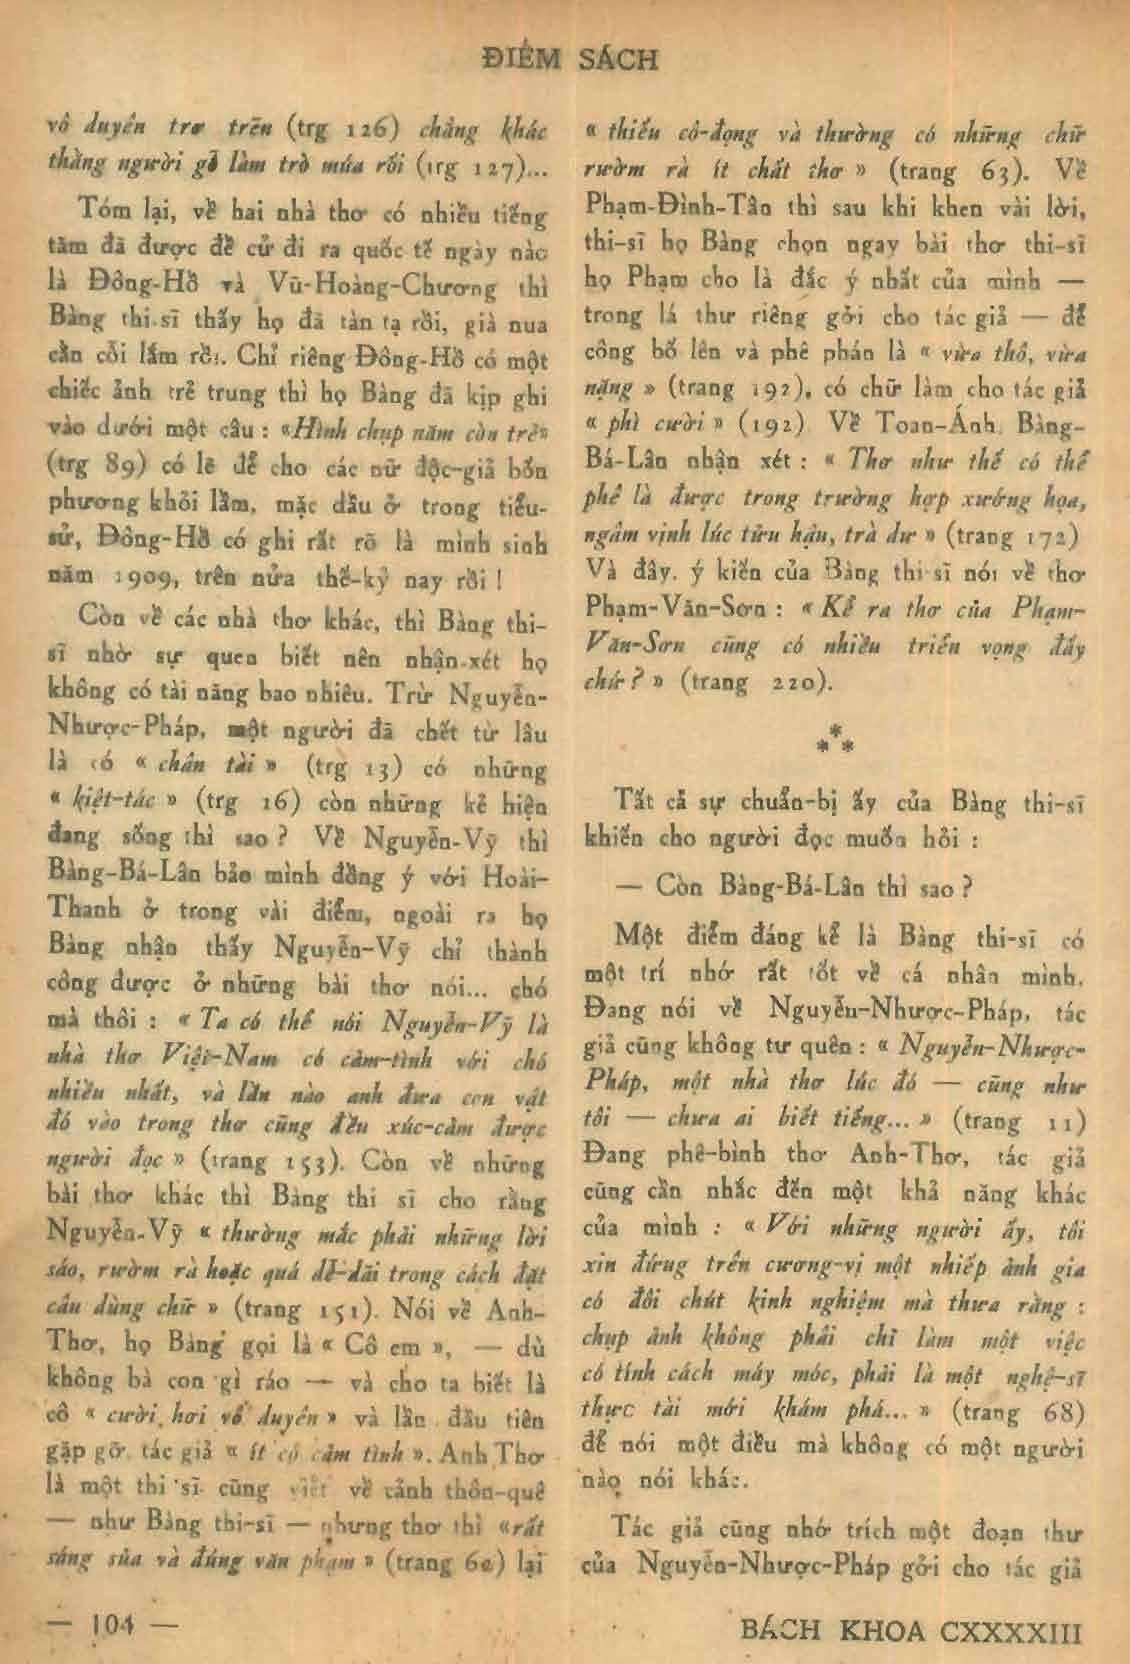 ĐIỂM SÁCH
vô duyên trơ trẽn (trg 126) chẳng khác
thằng người gỗ làm trò múa rối (trg 127)...
Tóm lại, về hai nhà thơ có nhiều tiếng
tăm đã được đề cử đi ra quốc tế ngày nào
là Đông-Hồ và Vũ-Hoàng-Chương thì
Bàng thi-sĩ thấy họ đã tàn tạ rồi, già nua
cằn cỗi lắm rồi. Chỉ riêng Đông-Hồ có một
chiếc ảnh trẻ trung thì họ Bàng đã kịp ghi
vào dưới một câu : «Hình chụp năm còn trẻ»
(trg 89) có lẽ để cho các nữ độc-giả bốn
phương khỏi lầm, mặc dầu ở trong tiểu-
sử, Đông-Hồ có ghi rất rõ là mình sinh
năm 1909, trên nửa thế-kỷ nay rồi !
Còn về các nhà thơ khác, thì Bàng thi-
sĩ nhờ sự quen biết nên nhận-xét họ
không có tài năng bao nhiêu. Trừ Nguyễn-
Nhược-Pháp, một người đã chết từ lâu
là có « chân tài » (trg 13) có những
« kiệt-tác » (trg 16) còn những kẻ hiện
đang sống thì sao ? Về Nguyễn-Vỹ thì
Bàng-Bá-Lân bảo mình đồng ý với Hoài-
Thanh ở trong vài điểm, ngoài ra họ
Bàng nhận thấy Nguyễn-Vỹ chỉ thành
công được ở những bài thơ nói... chó
mà thôi : « Ta có thể nói Nguyễn-Vỹ là
nhà thơ Việt-Nam có cảm-tình với chó
nhiều nhất, và lần nào anh đưa con vật
đó vào trong thơ cũng đều xúc-cảm được
người đọc » (trang 153). Còn về những
bài thơ khác thì Bàng thi sĩ cho rằng
Nguyễn-Vỹ « thường mắc phải những lời
sáo, rườm rà hoặc quá dễ-dãi trong cách đặt
câu dùng chữ » (trang 151). Nói về Anh-
Thơ, họ Bàng gọi là « Cô em », — dù
không bà con gì ráo — và cho ta biết là
cô « cười hơi vô duyên » và lần đầu tiên
gặp gỡ, tác giả « ít có cảm tình ». Anh Thơ
là một thi sĩ cũng viết về cảnh thôn-quê
— như Bàng thi-sĩ — nhưng thơ thì «rất
sáng sủa và đúng văn phạm » (trang 60) lại
« thiếu cô-đọng và thường có những chữ
rườm rà ít chất thơ » (trang 63). Về
Phạm-Đình-Tân thì sau khi khen vài lời,
thi-sĩ họ Bàng chọn ngay bài thơ thi-sĩ
họ Phạm cho là đắc ý nhất của mình —
trong lá thư riêng gởi cho tác giả — để
công bố lên và phê phán là « vừa thô, vừa
nặng » (trang 192), có chữ làm cho tác giả
« phì cười » (192) Về Toan-Ánh, Bàng-
Bá-Lân nhận xét : « Thơ như thế có thể
phê là được trong trường hợp xướng họa,
ngâm vịnh lúc tửu hậu, trà dư » (trang 172)
Và đây, ý kiến của Bàng thi-sĩ nói về thơ
Phạm-Văn-Sơn : « Kể ra thơ của Phạm-
Văn-Sơn cũng có nhiều triển vọng đấy
chứ ? » (trang 220).
* * *
Tất cả sự chuẩn-bị ấy của Bàng thi-sĩ
khiến cho người đọc muốn hỏi :
— Còn Bàng-Bá-Lân thì sao ?
Một điểm đáng kể là Bàng thi-sĩ có
một trí nhớ rất tốt về cá nhân mình.
Đang nói về Nguyễn-Nhược-Pháp, tác
giả cũng không tự quên : « Nguyễn-Nhược-
Pháp, một nhà thơ lúc đó — cũng như
tôi — chưa ai biết tiếng... » (trang 11)
Đang phê-bình thơ Anh-Thơ, tác giả
cũng cần nhắc đến một khả năng khác
của mình : « Với những người ấy, tôi
xin đứng trên cương-vị một nhiếp ảnh gia
có đôi chút kinh nghiệm mà thưa rằng :
chụp ảnh không phải chỉ làm một việc
có tính cách máy móc, phải là một nghệ-sĩ
thực tài mới khám phá... » (trang 68)
để nói một điều mà không có một người
nào nói khác.
Tác giả cũng nhớ trích một đoạn thư
của Nguyễn-Nhược-Pháp gởi cho tác giả
— 104 —
BÁCH KHOA CXXXXIII